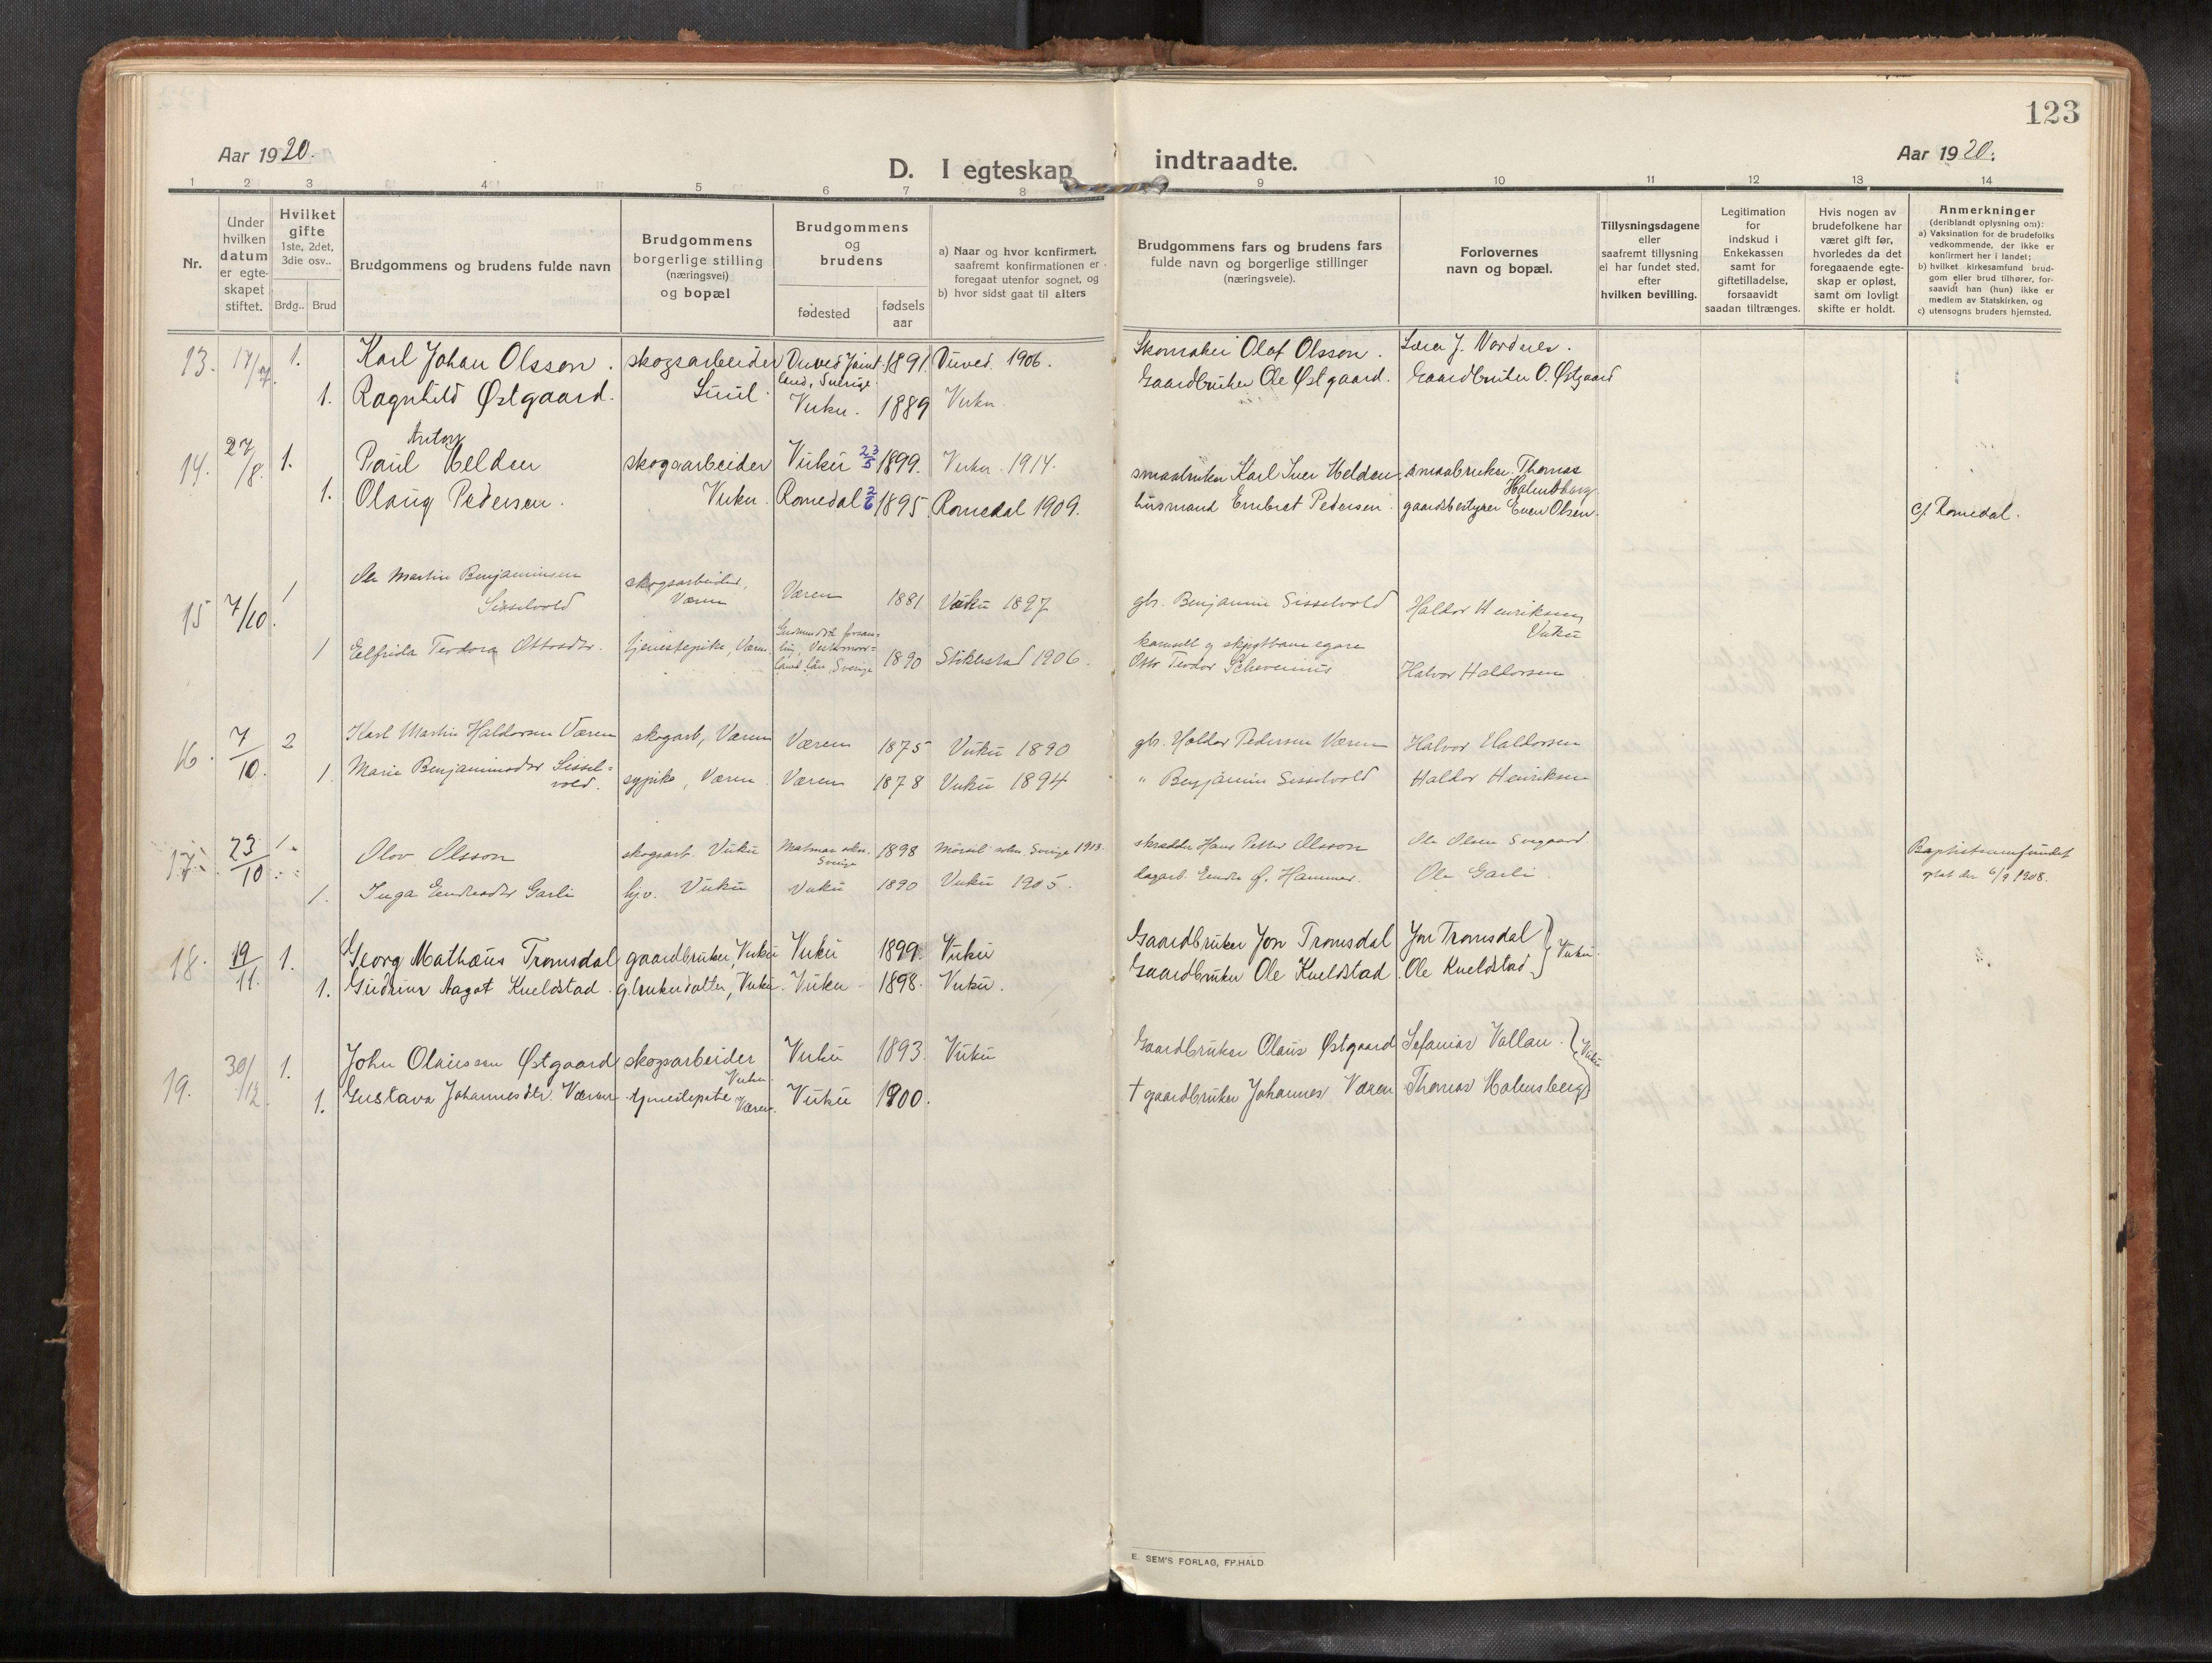 123
Aar 1920.
D. I egteskap indtraadte.
Aar 1920.
1 2 3 4 5 6 7 8 9 10 11 12 13 14
Nr.
Under
hvilken
datum
er egte-
skapet
stiftet.
Hvilket
gifte
1ste, 2det,
3die osv..
Brdg.. Brud
Brudgommens og brudens fulde navn
Brudgommens
borgerlige stilling
(næringsvei)
og bopæl
Brudgommens
og
brudens
fødested
fødsels
aar
a) Naar og hvor konfirmert,
saafremt konfirmationen er
foregaat utenfor sognet, og
b) hvor sidst gaat til alters
Brudgommens fars og brudens fars
fulde navn og borgerlige stillinger
(næringsveie).
Forlovernes
navn og bopæl.
Tillysningsdagene
eller
saafremt tillysning
ei har fundet sted,
efter
hvilken bevilling.
Legitimation
for
indskud i
Enkekassen
samt for
giftetilladelse,
forsaavidt
saadan tiltrænges.
Hvis nogen av
brudefolkene har
været gift før,
hvorledes da det
foregaaende egte-
skap er opløst,
samt om lovligt
skifte er holdt.
Anmerkninger
(deriblandt oplysning om):
a) Vaksination for de brudefolks
vedkommende, der ikke er
konfirmert her i landet;
b) hvilket kirkesamfund brud-
gom eller brud tilhører, for-
saavidt han (hun) ikke er
medlem av Statskirken, og
c) utensogns bruders hjemsted.
13. 1. Karl Johan Olsson. skogsarbeider Duved Jämt 1891. Duved 1906. Skomaker Olof Olsson.
land, Sverige.
1. Ragnhild Østgaard. Suul. Vuku. 1889 Vuku. Gaardbruker Ole Østgaard. Gaardbruker O. Østgaard
Anton
14. 27/8. 1. Paul Helden skogsarbeider Vuku 23/5 1899. Vuku 1914. smaabruker Karl Iver Helden smaabruker Thomas
Holmsberg
1. Olaug Pedersen. Vuku. Romedal 2/6 1895. Romedal 1909. husmand Embret Pedersen. gaardsbestyrer Even Olsen. cf. Romedal.
15 7/10. 1 Ole Martin Benjaminsen skogsarbeider,
Sisselvold Væren Væren 1881 Vuku 1897 gbr. Benjamin Sisselvold Haldor Henriksen,
Vuku
1 Elfrida Teodora Ottosdtr. tjenestepike, Væren. 1890 Stiklestad 1906. Otto Teodor Schevenius Halvor Haldorsen
land, län, Sverige
16. 7/10. 2 Karl Martin Haldorsen Væren skogarb, Væren Væren 1875 Vuku 1890 gbr. Haldor Pedersen Væren Halvor Haldorsen
1. Marie Benjaminsdtr Sissel-
vold. sypike, Væren Væren 1878 Vuku 1894 " Benjamin Sisselvold Haldor Henriksen
17. 23/10 1. Olov Olsson skogsarb. Vuku Matmar sokn, Sverige 1898 Mörsil sokn, Sverige 1913. skrædder Hans Petter Olsson Ole Olsen
Baptistsamfundet
1. Inga Endresdtr Garli Vuku Vuku 1890 Vuku 1905. dagarb. Endre O. Hammer. Ole Garli. 6/9 1908.
18. 19/11. 1. Georg Mathæus Tromsdal gaardbruker, Vuku Vuku 1899. Vuku Gaardbruker Jon Tromsdal Jon Tromsdal
Vuku.
1. Gudrun Aagot Kvelstad. g.brukerdatter, Vuku. Vuku 1898. Vuku. Gaardbruker Ole Kvelstad Ole Kvelstad
19. 30/12. 1. John Olaussen Østgaard skogsarbeider Vuku. Vuku 1893. Vuku Gaardbruker Olaus Østgaard Sefanias Vollan.
Vuku
1. Gustava Johannesdtr. Væren. tjenestepike Væren. Vuku 1900. † gaardbruker Johannes Væren Thomas Holmsberg
E. SEM'S FORLAG, FR.HALD